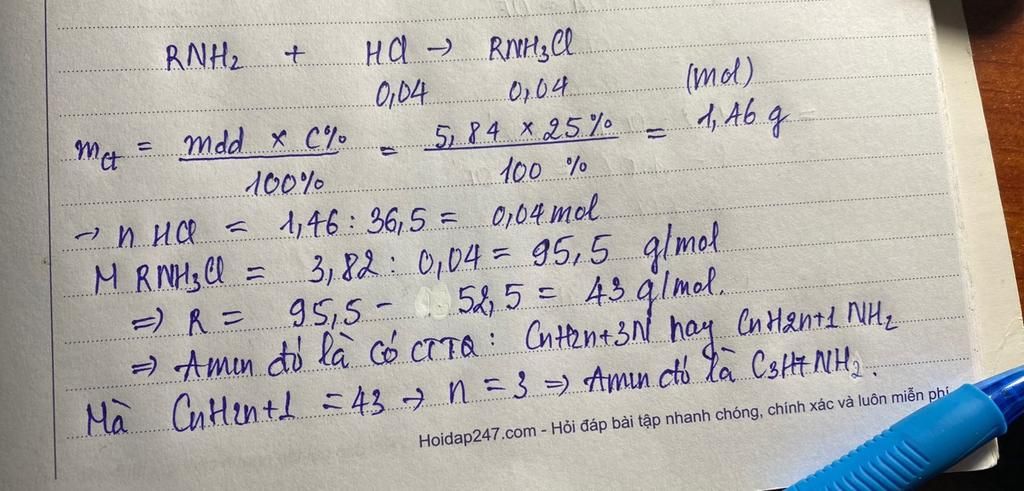 RNH2 + HCl → RNH3Cl
0,04 0,04 (mol)
mct = mdd x C% / 100% = 5,84 x 25% / 100 % = 1,46 g
→ n HCl = 1,46 : 36,5 = 0,04 mol
M RNH3Cl = 3,82 : 0,04 = 95,5 g/mol
=> R = 95,5 - 52,5 = 43 g/mol.
=> Amin đó là có CTTQ : CnH2n+3N hay CnH2n+1 NH2
Mà CnH2n+1 = 43 → n = 3 => Amin đó là C3H7NH2.
Hoidap247.com - Hỏi đáp bài tập nhanh chóng, chính xác và luôn miễn phí